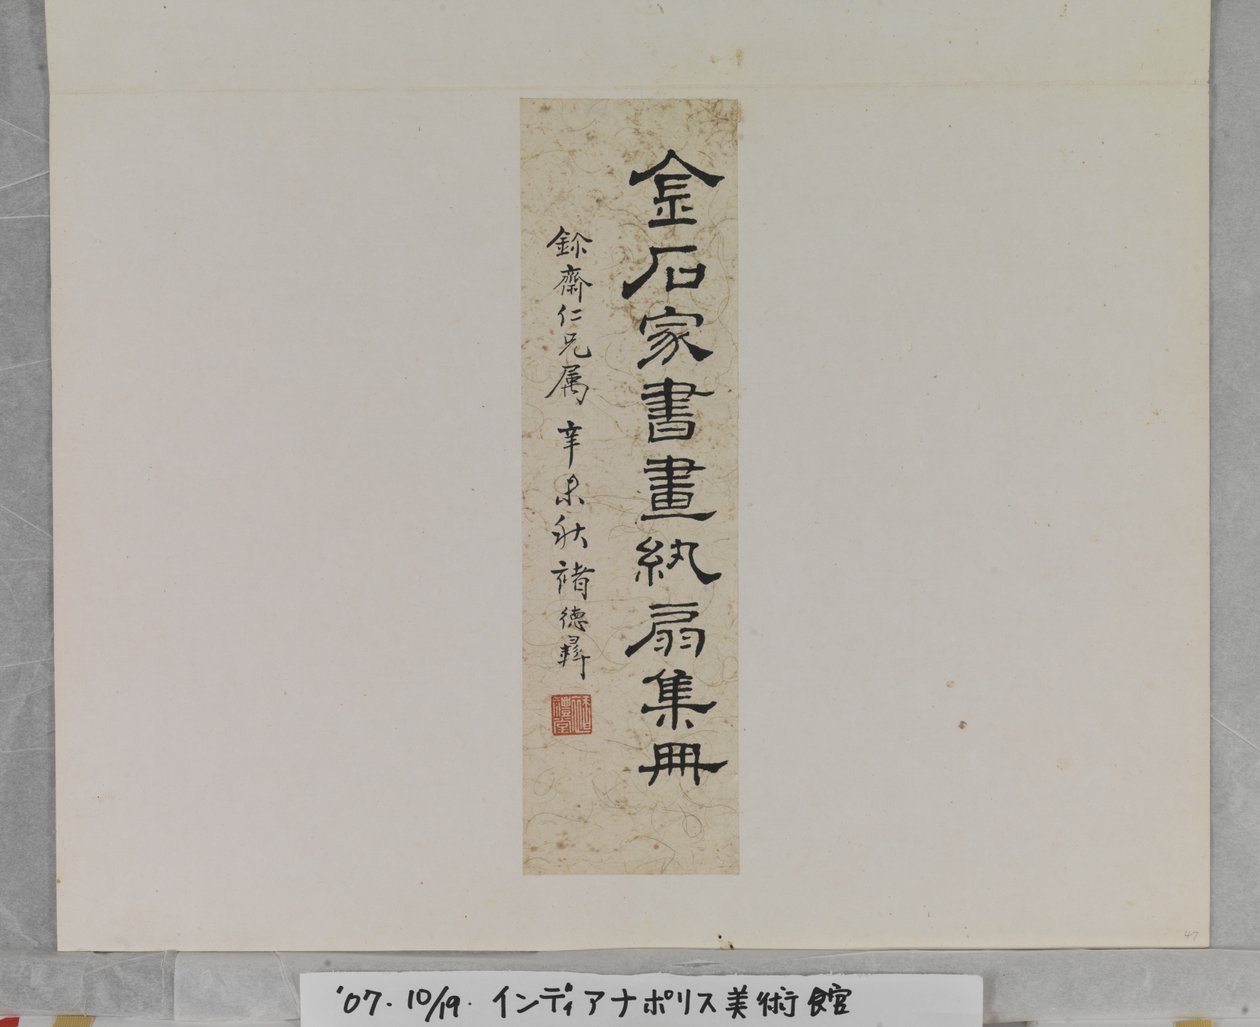 金石家書畫紈扇集冊
鉩齋仁兄属 辛未秋 褚德彝
47
'07. 10/19. インディアナポリス美術館